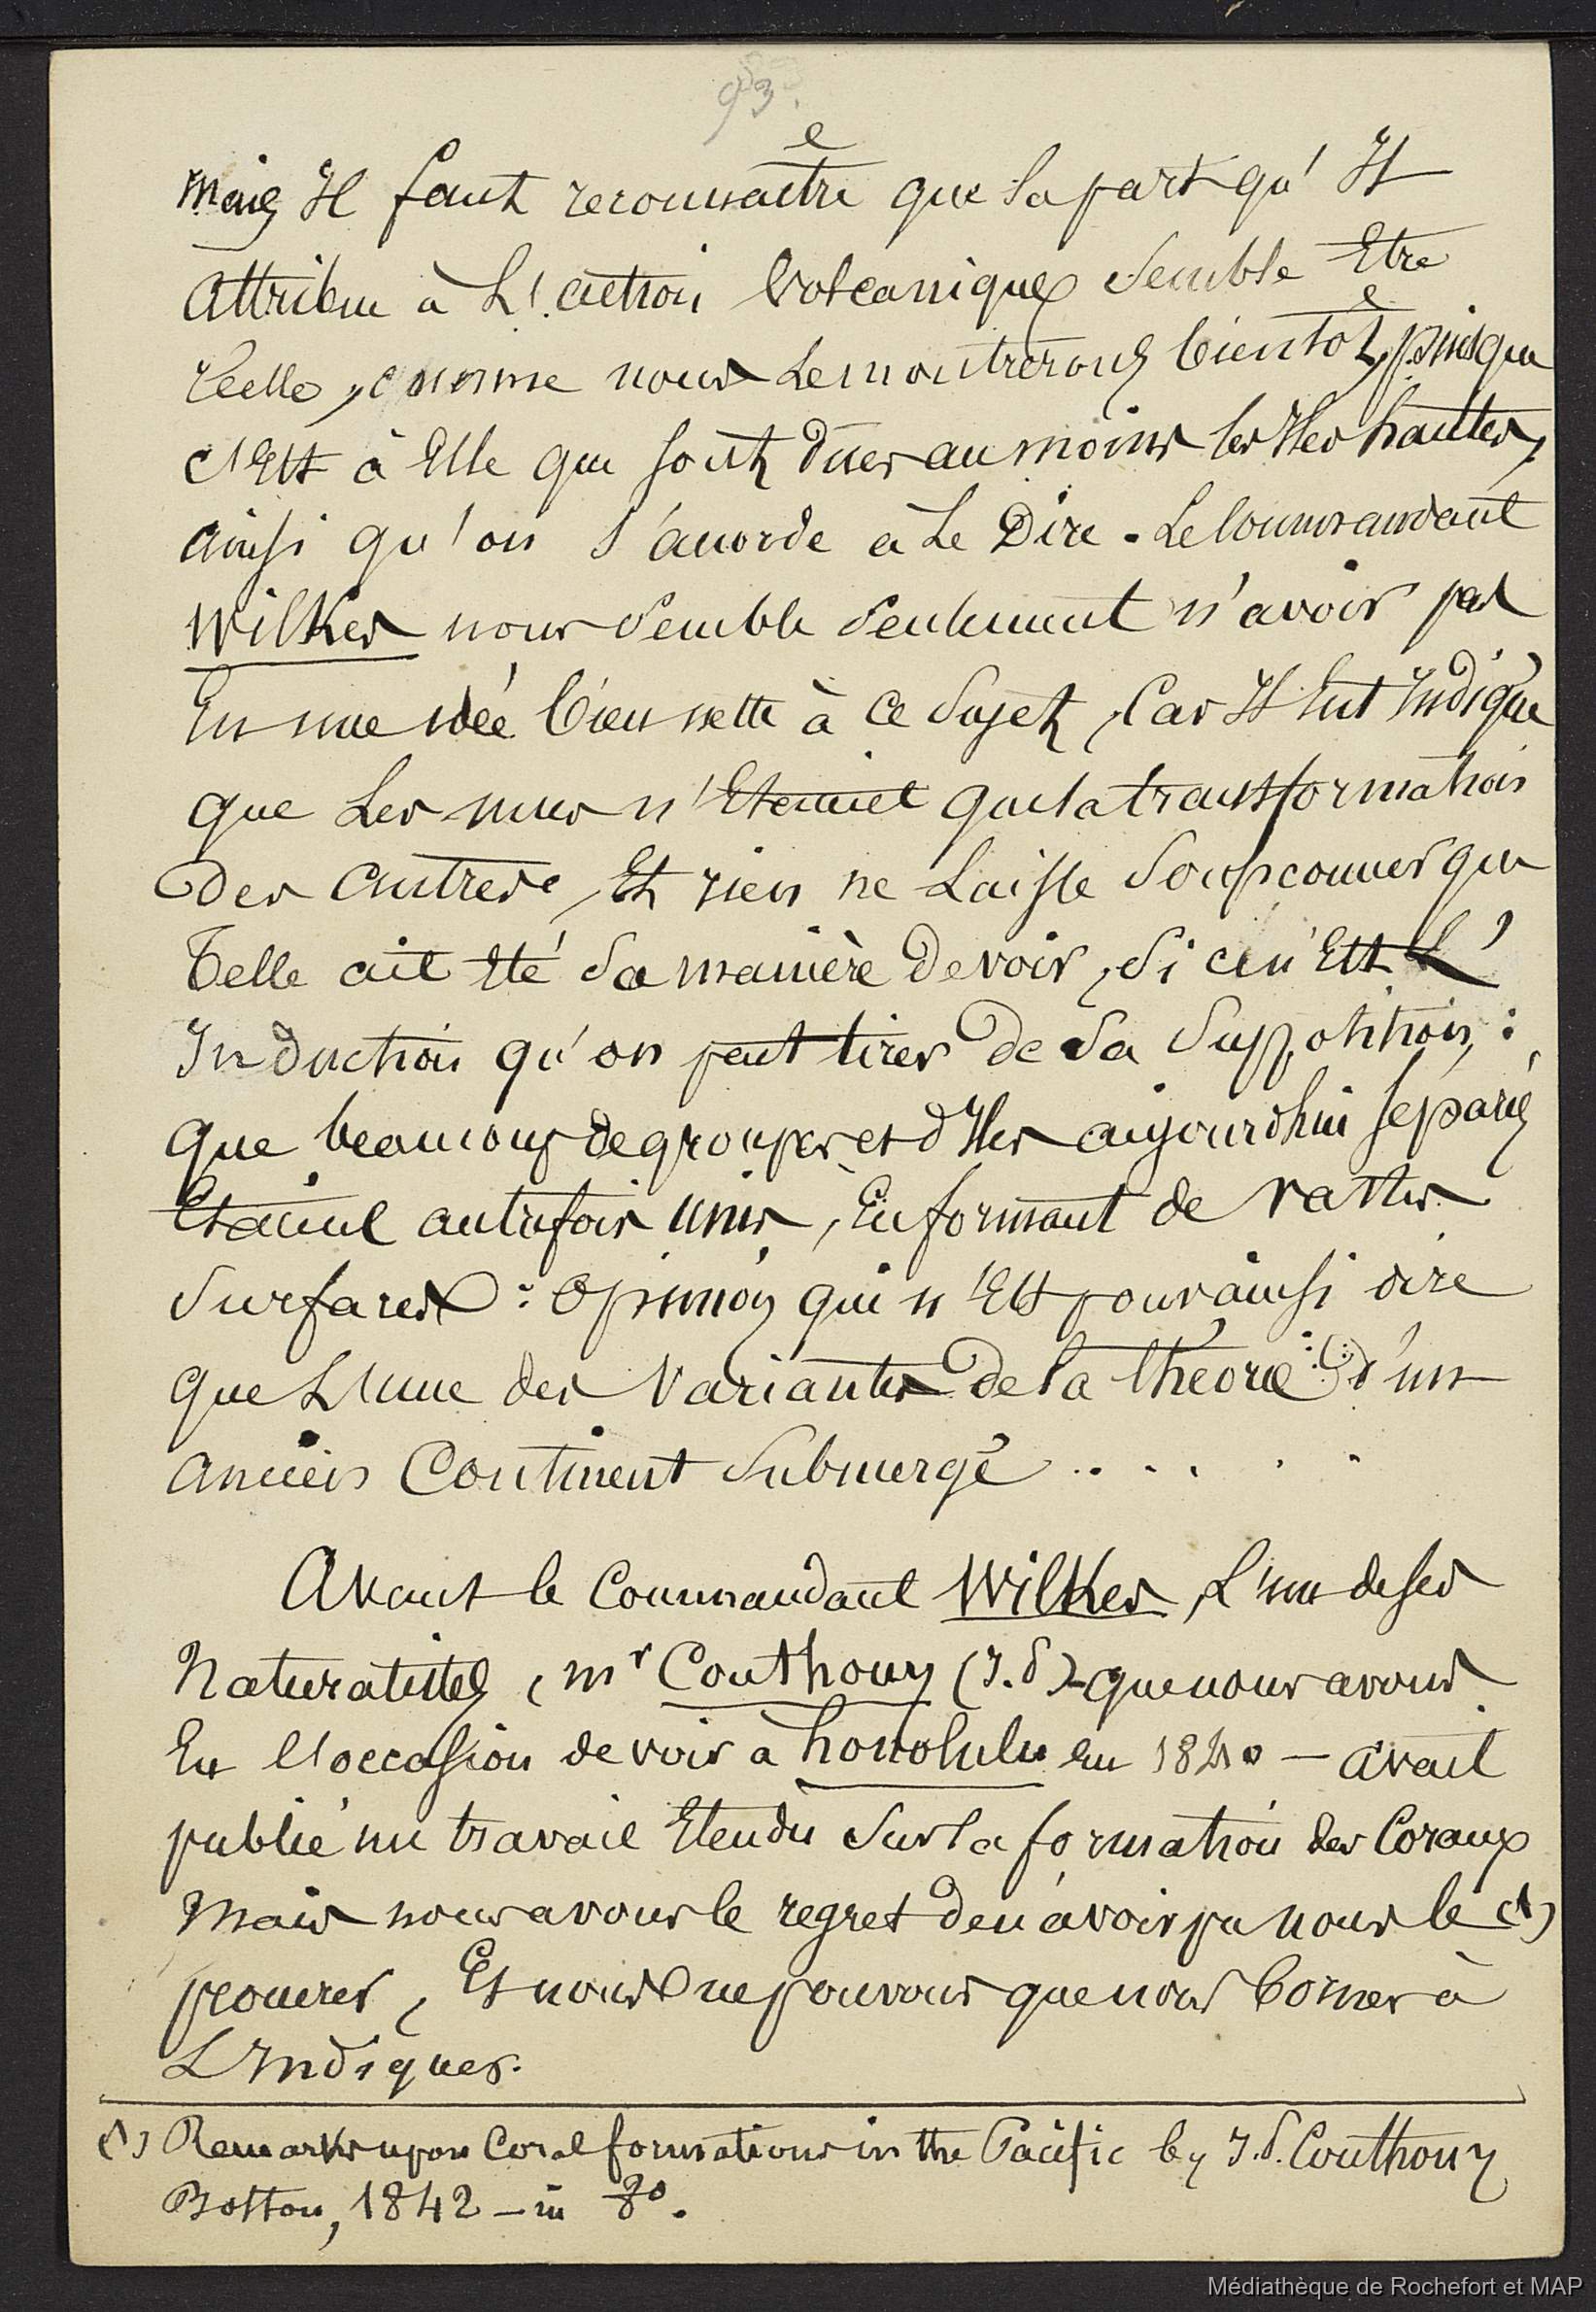 93.
Mais Il faut reconnaître que la part qu'Il
Attribue à L'action Volcanique semble Etre
réelle, comme nous Le montrerons bientôt, puisque
c'Est à Elle que sont dues au moins les Iles hautes,
ainsi qu'on s'accorde à Le Dire. Le Commandant
Wilkes nous semble seulement n'avoir pas
Eu une idée bien nette à ce sujet, Car Il Eut Indiqué
que Les unes n'Etaient que la transformation
Des autres, Et rien ne Laisse Soupconner que
Telle ait Eté sa manière De voir, si ce n'Est L'
Induction qu'on peut tirer De Sa Supposition :
Que beaucoup de groupes et d'Iles aujourdhui séparés
Etaient autrefois unis, En formant de vastes
Surfaces : Opinion qui n'Est pour ainsi dire
que L'une des Variantes De la théorie d'un
ancien Continent Submergé .....
Avant le Commandant Wilkes, L'un de ses
Naturalistes, mr Couthouy (J.S) - que nous avons
Eu l'occasion de voir à honolulu En 1840 — avait
publié un travail Etendu Sur la formation des Coraux
Mais nous avons le regret de n'avoir pu nous le (1)
procurer, Et nous ne pouvons que nous borner à
L'Indiquer.
(1) Remarks upon Coral formations in the Pacific by J.S. Couthouy
Boston, 1842 – in 8o.
Médiathèque de Rochefort et MAP